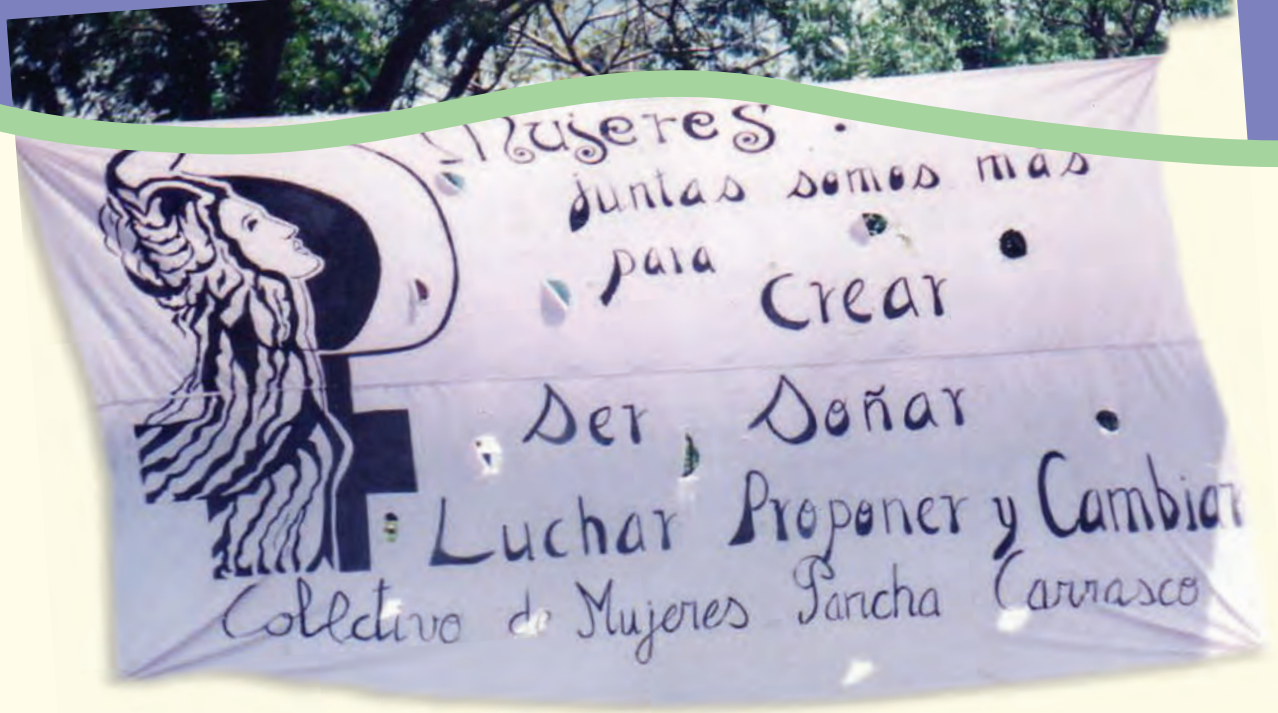 Mujeres
juntas somos más
para
Crear
Ser Soñar
Luchar Proponer y Cambiar
Colectivo de Mujeres Pancha Carrasco